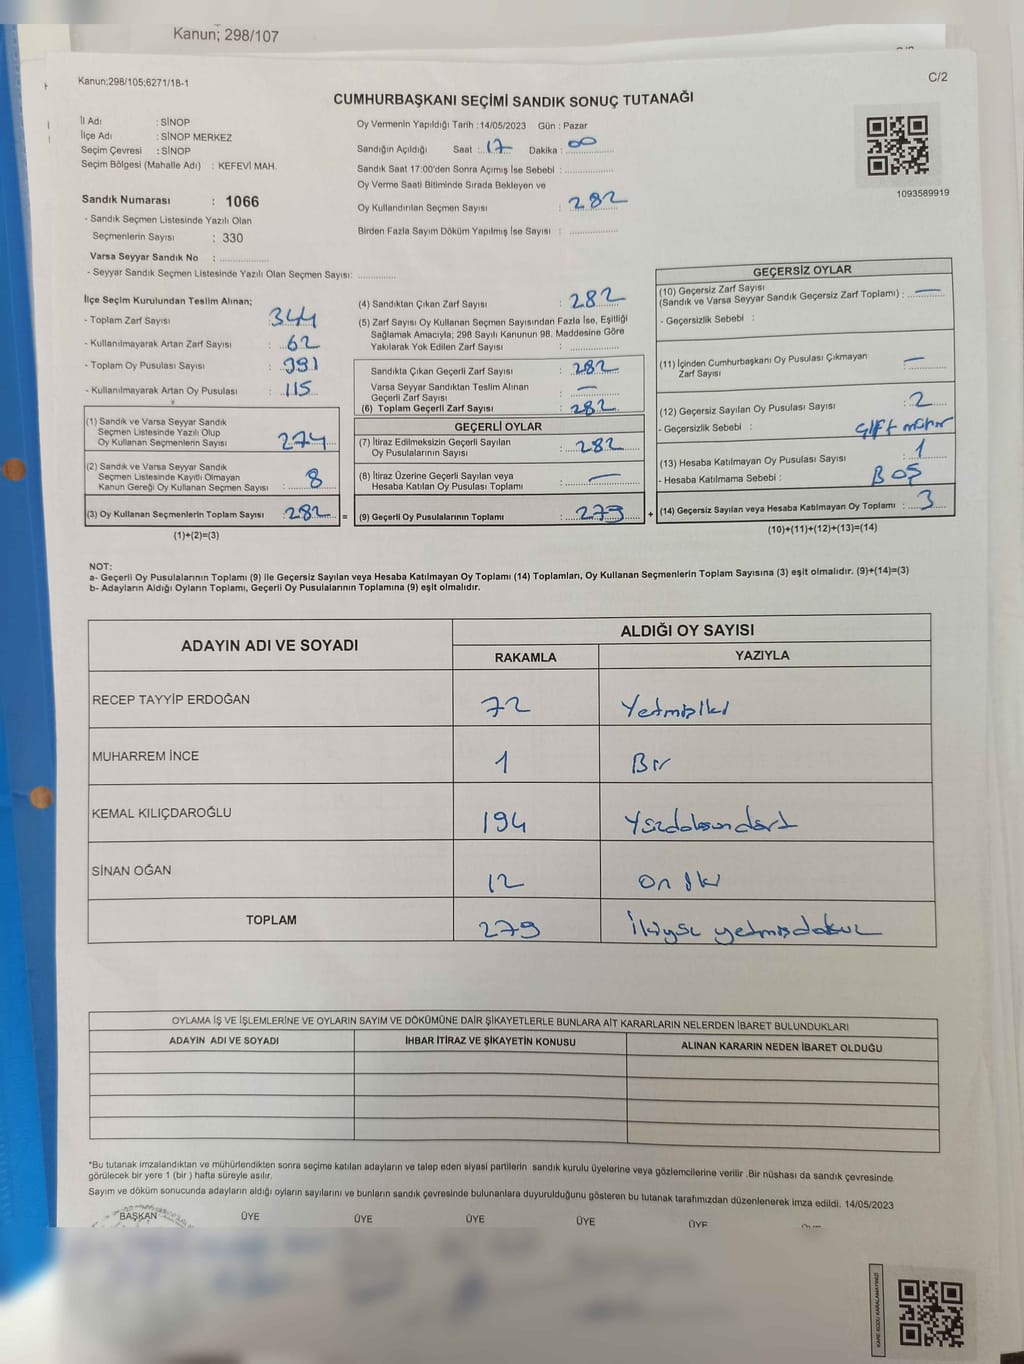 Kanun; 298/107
Kanun;298/105;6271/18-1
C/2
CUMHURBAŞKANI SEÇİMİ SANDIK SONUÇ TUTANAĞI
İl Adı : SİNOP
İlçe Adı : SİNOP MERKEZ
Seçim Çevresi : SİNOP
Seçim Bölgesi (Mahalle Adı) : KEFEVİ MAH.
Sandık Numarası : 1066
- Sandık Seçmen Listesinde Yazılı Olan
Seçmenlerin Sayısı : 330
Varsa Seyyar Sandık No : ..............
- Seyyar Sandık Seçmen Listesinde Yazılı Olan Seçmen Sayısı: ............
Oy Vermenin Yapıldığı Tarih :14/05/2023 Gün : Pazar
Sandığın Açıldığı Saat : 17 Dakika : 00
Sandık Saat 17:00'den Sonra Açımış İse Sebebi : ..............
Oy Verme Saati Bitiminde Sırada Bekleyen ve
Oy Kullandırılan Seçmen Sayısı : 282
Birden Fazla Sayım Döküm Yapılmış İse Sayısı : ..............
1093589919
İlçe Seçim Kurulundan Teslim Alınan;
- Toplam Zarf Sayısı 344
- Kullanılmayarak Artan Zarf Sayısı : 62
- Toplam Oy Pusulası Sayısı : 391
- Kullanılmayarak Artan Oy Pusulası : 115
(1) Sandık ve Varsa Seyyar Sandık
Seçmen Listesinde Yazılı Olup
Oy Kullanan Seçmenlerin Sayısı : 274
(2) Sandık ve Varsa Seyyar Sandık
Seçmen Listesinde Kayıtlı Olmayan
Kanun Gereği Oy Kullanan Seçmen Sayısı : 8
(3) Oy Kullanan Seçmenlerin Toplam Sayısı : 282 =
(1)+(2)=(3)
(4) Sandıktan Çıkan Zarf Sayısı : 282
(5) Zarf Sayısı Oy Kullanan Seçmen Sayısından Fazla İse, Eşitliği
Sağlamak Amacıyla; 298 Sayılı Kanunun 98. Maddesine Göre
Yakılarak Yok Edilen Zarf Sayısı : ..............
Sandıkta Çıkan Geçerli Zarf Sayısı : 282
Varsa Seyyar Sandıktan Teslim Alınan
Geçerli Zarf Sayısı : —
(6) Toplam Geçerli Zarf Sayısı : 282
GEÇERLİ OYLAR
(7) İtiraz Edilmeksizin Geçerli Sayılan
Oy Pusulalarının Sayısı : 282
(8) İtiraz Üzerine Geçerli Sayılan veya
Hesaba Katılan Oy Pusulası Toplamı : —
(9) Geçerli Oy Pusulalarının Toplamı : 279 +
GEÇERSİZ OYLAR
(10) Geçersiz Zarf Sayısı
(Sandık ve Varsa Seyyar Sandık Geçersiz Zarf Toplamı) : —
- Geçersizlik Sebebi :
(11) İçinden Cumhurbaşkanı Oy Pusulası Çıkmayan
Zarf Sayısı : —
(12) Geçersiz Sayılan Oy Pusulası Sayısı : 2
- Geçersizlik Sebebi : Çift mühür
(13) Hesaba Katılmayan Oy Pusulası Sayısı : 1
- Hesaba Katılmama Sebebi : BOŞ
(14) Geçersiz Sayılan veya Hesaba Katılmayan Oy Toplamı : 3
(10)+(11)+(12)+(13)=(14)
NOT:
a- Geçerli Oy Pusulalarının Toplamı (9) ile Geçersiz Sayılan veya Hesaba Katılmayan Oy Toplamı (14) Toplamları, Oy Kullanan Seçmenlerin Toplam Sayısına (3) eşit olmalıdır. (9)+(14)=(3)
b- Adayların Aldığı Oyların Toplamı, Geçerli Oy Pusulalarının Toplamına (9) eşit olmalıdır.
ADAYIN ADI VE SOYADI ALDIĞI OY SAYISI
RAKAMLA YAZIYLA
RECEP TAYYİP ERDOĞAN 72 Yetmişiki
MUHARREM İNCE 1 Bir
KEMAL KILIÇDAROĞLU 194 Yüzdoksandört
SİNAN OĞAN 12 on iki
TOPLAM 279 İkiyüz yetmişdokuz
OYLAMA İŞ VE İŞLEMLERİNE VE OYLARIN SAYIM VE DÖKÜMÜNE DAİR ŞİKAYETLERLE BUNLARA AİT KARARLARIN NELERDEN İBARET BULUNDUKLARI
ADAYIN ADI VE SOYADI İHBAR İTİRAZ VE ŞİKAYETİN KONUSU ALINAN KARARIN NEDEN İBARET OLDUĞU
*Bu tutanak imzalandıktan ve mühürlendikten sonra seçime katılan adayların ve talep eden siyasi partilerin sandık kurulu üyelerine veya gözlemcilerine verilir .Bir nüshası da sandık çevresinde
görülecek bir yere 1 (bir ) hafta süreyle asılır.
Sayım ve döküm sonucunda adayların aldığı oyların sayılarını ve bunların sandık çevresinde bulunanlara duyurulduğunu gösteren bu tutanak tarafımızdan düzenlenerek imza edildi. 14/05/2023
BAŞKAN ÜYE ÜYE ÜYE ÜYE ÜYE